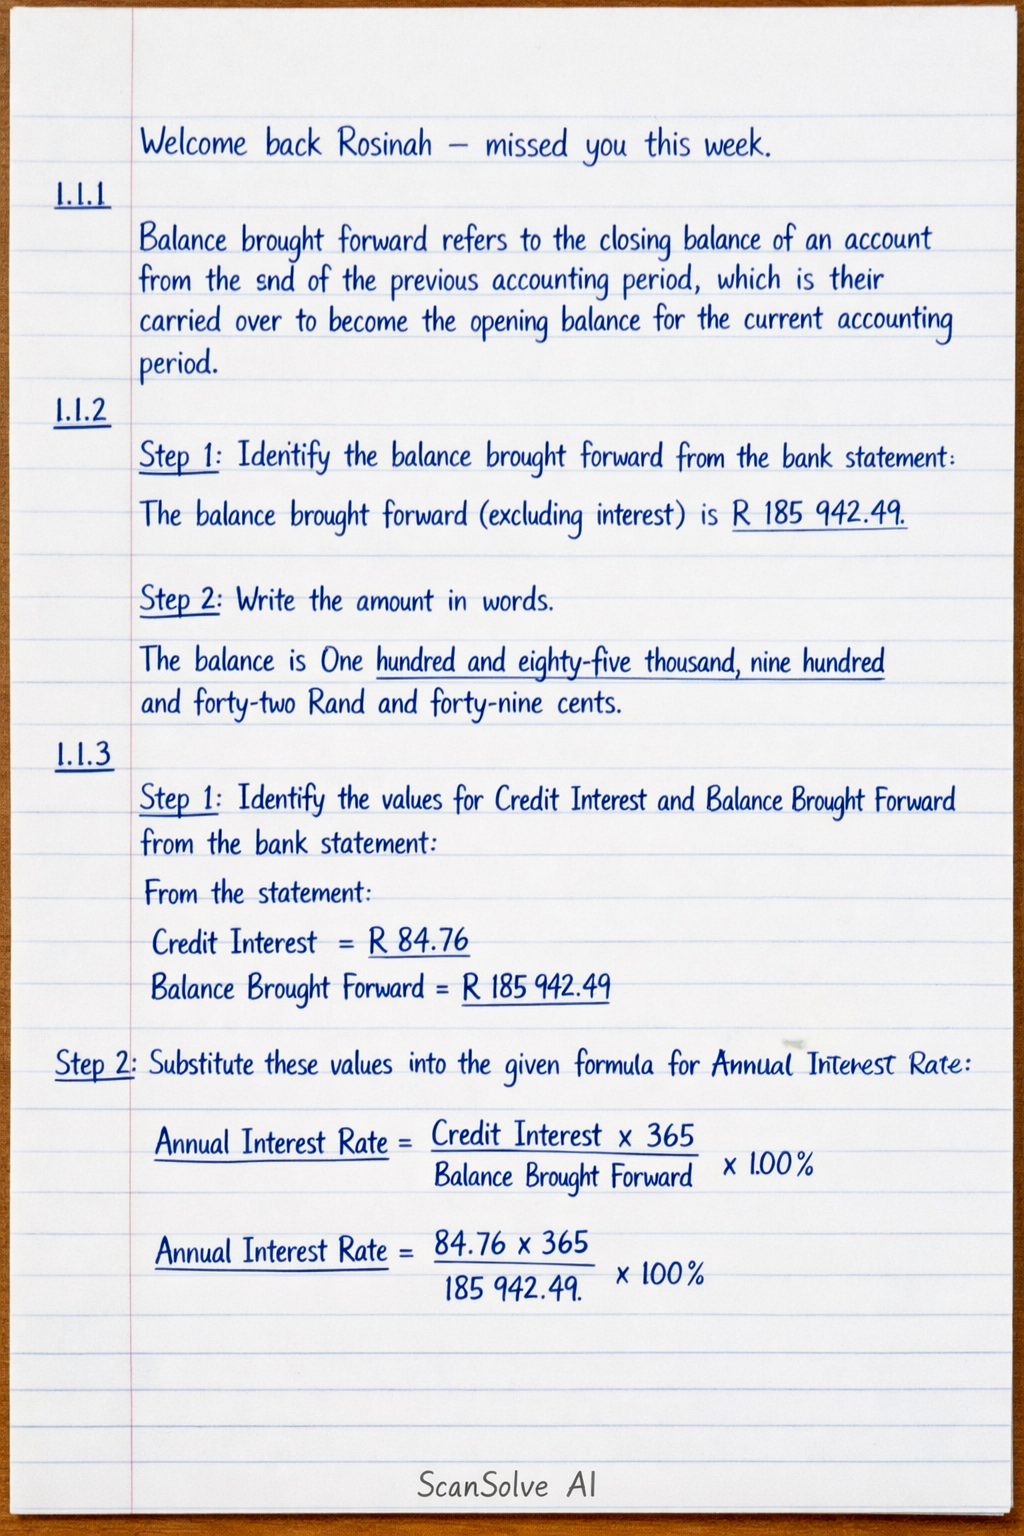 Welcome back Rosinah – missed you this week.
1.1.1
Balance brought forward refers to the closing balance of an account
from the snd of the previous accounting period, which is their
carried over to become the opening balance for the current accounting
period.
1.1.2
Step 1: Identify the balance brought forward from the bank statement:
The balance brought forward (excluding interest) is R 185 942.49.
Step 2: Write the amount in words.
The balance is One hundred and eighty-five thousand, nine hundred
and forty-two Rand and forty-nine cents.
1.1.3
Step 1: Identify the values for Credit Interest and Balance Brought Forward
from the bank statement:
From the statement:
Credit Interest = R 84.76
Balance Brought Forward = R 185 942.49
Step 2: Substitute these values into the given formula for Annual Interest Rate:
Annual Interest Rate = Credit Interest x 365
Balance Brought Forward x 1.00%
Annual Interest Rate = 84.76 x 365
185 942.49. x 100%
ScanSolve AI